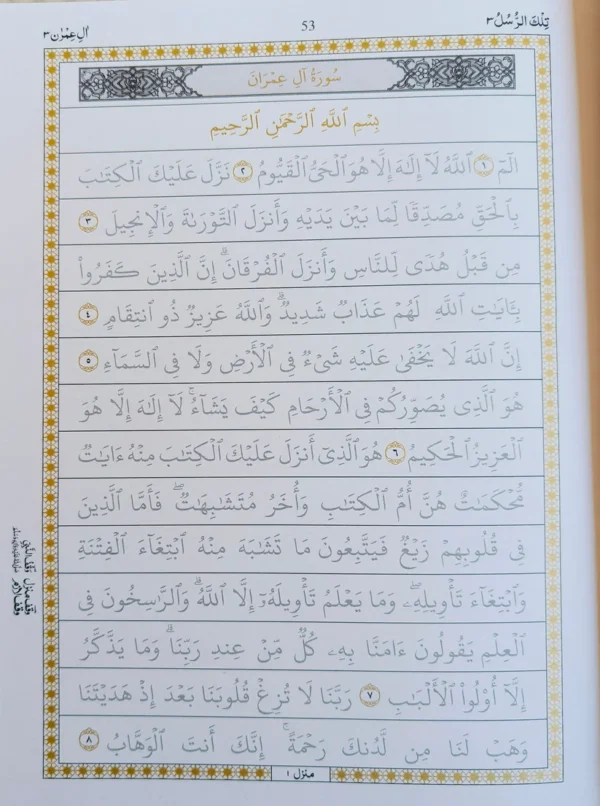 تِلْكَ الرُّسُلُ ٣
53
اٰلِ عِمْرٰن ٣
سُورَةُ آلِ عِمْرَانَ
بِسْمِ ٱللَّهِ ٱلرَّحْمَٰنِ ٱلرَّحِيمِ
الٓمٓ ١ ٱللَّهُ لَآ إِلَٰهَ إِلَّا هُوَ ٱلْحَيُّ ٱلْقَيُّومُ ٢ نَزَّلَ عَلَيْكَ ٱلْكِتَٰبَ
بِٱلْحَقِّ مُصَدِّقًا لِّمَا بَيْنَ يَدَيْهِ وَأَنزَلَ ٱلتَّوْرَىٰةَ وَٱلْإِنجِيلَ ٣
مِن قَبْلُ هُدًى لِّلنَّاسِ وَأَنزَلَ ٱلْفُرْقَانَ ۗ إِنَّ ٱلَّذِينَ كَفَرُوا۟
بِـَٔايَٰتِ ٱللَّهِ لَهُمْ عَذَابٌ شَدِيدٌ ۗ وَٱللَّهُ عَزِيزٌ ذُو ٱنتِقَامٍ ٤
إِنَّ ٱللَّهَ لَا يَخْفَىٰ عَلَيْهِ شَىْءٌ فِى ٱلْأَرْضِ وَلَا فِى ٱلسَّمَآءِ ٥
هُوَ ٱلَّذِى يُصَوِّرُكُمْ فِى ٱلْأَرْحَامِ كَيْفَ يَشَآءُ ۚ لَآ إِلَٰهَ إِلَّا هُوَ
ٱلْعَزِيزُ ٱلْحَكِيمُ ٦ هُوَ ٱلَّذِىٓ أَنزَلَ عَلَيْكَ ٱلْكِتَٰبَ مِنْهُ ءَايَٰتٌ
مُّحْكَمَٰتٌ هُنَّ أُمُّ ٱلْكِتَٰبِ وَأُخَرُ مُتَشَٰبِهَٰتٌ ۖ فَأَمَّا ٱلَّذِينَ
فِى قُلُوبِهِمْ زَيْغٌ فَيَتَّبِعُونَ مَا تَشَٰبَهَ مِنْهُ ٱبْتِغَآءَ ٱلْفِتْنَةِ
وَٱبْتِغَآءَ تَأْوِيلِهِۦ ۗ وَمَا يَعْلَمُ تَأْوِيلَهُۥٓ إِلَّا ٱللَّهُ ۗ وَٱلرَّٰسِخُونَ فِى
ٱلْعِلْمِ يَقُولُونَ ءَامَنَّا بِهِۦ كُلٌّ مِّنْ عِندِ رَبِّنَا ۗ وَمَا يَذَّكَّرُ
إِلَّآ أُو۟لُوا۟ ٱلْأَلْبَٰبِ ٧ رَبَّنَا لَا تُزِغْ قُلُوبَنَا بَعْدَ إِذْ هَدَيْتَنَا
وَهَبْ لَنَا مِن لَّدُنكَ رَحْمَةً ۚ إِنَّكَ أَنتَ ٱلْوَهَّابُ ٨
منزل ١
وقف النبي
وقف منزل
وقف لازم